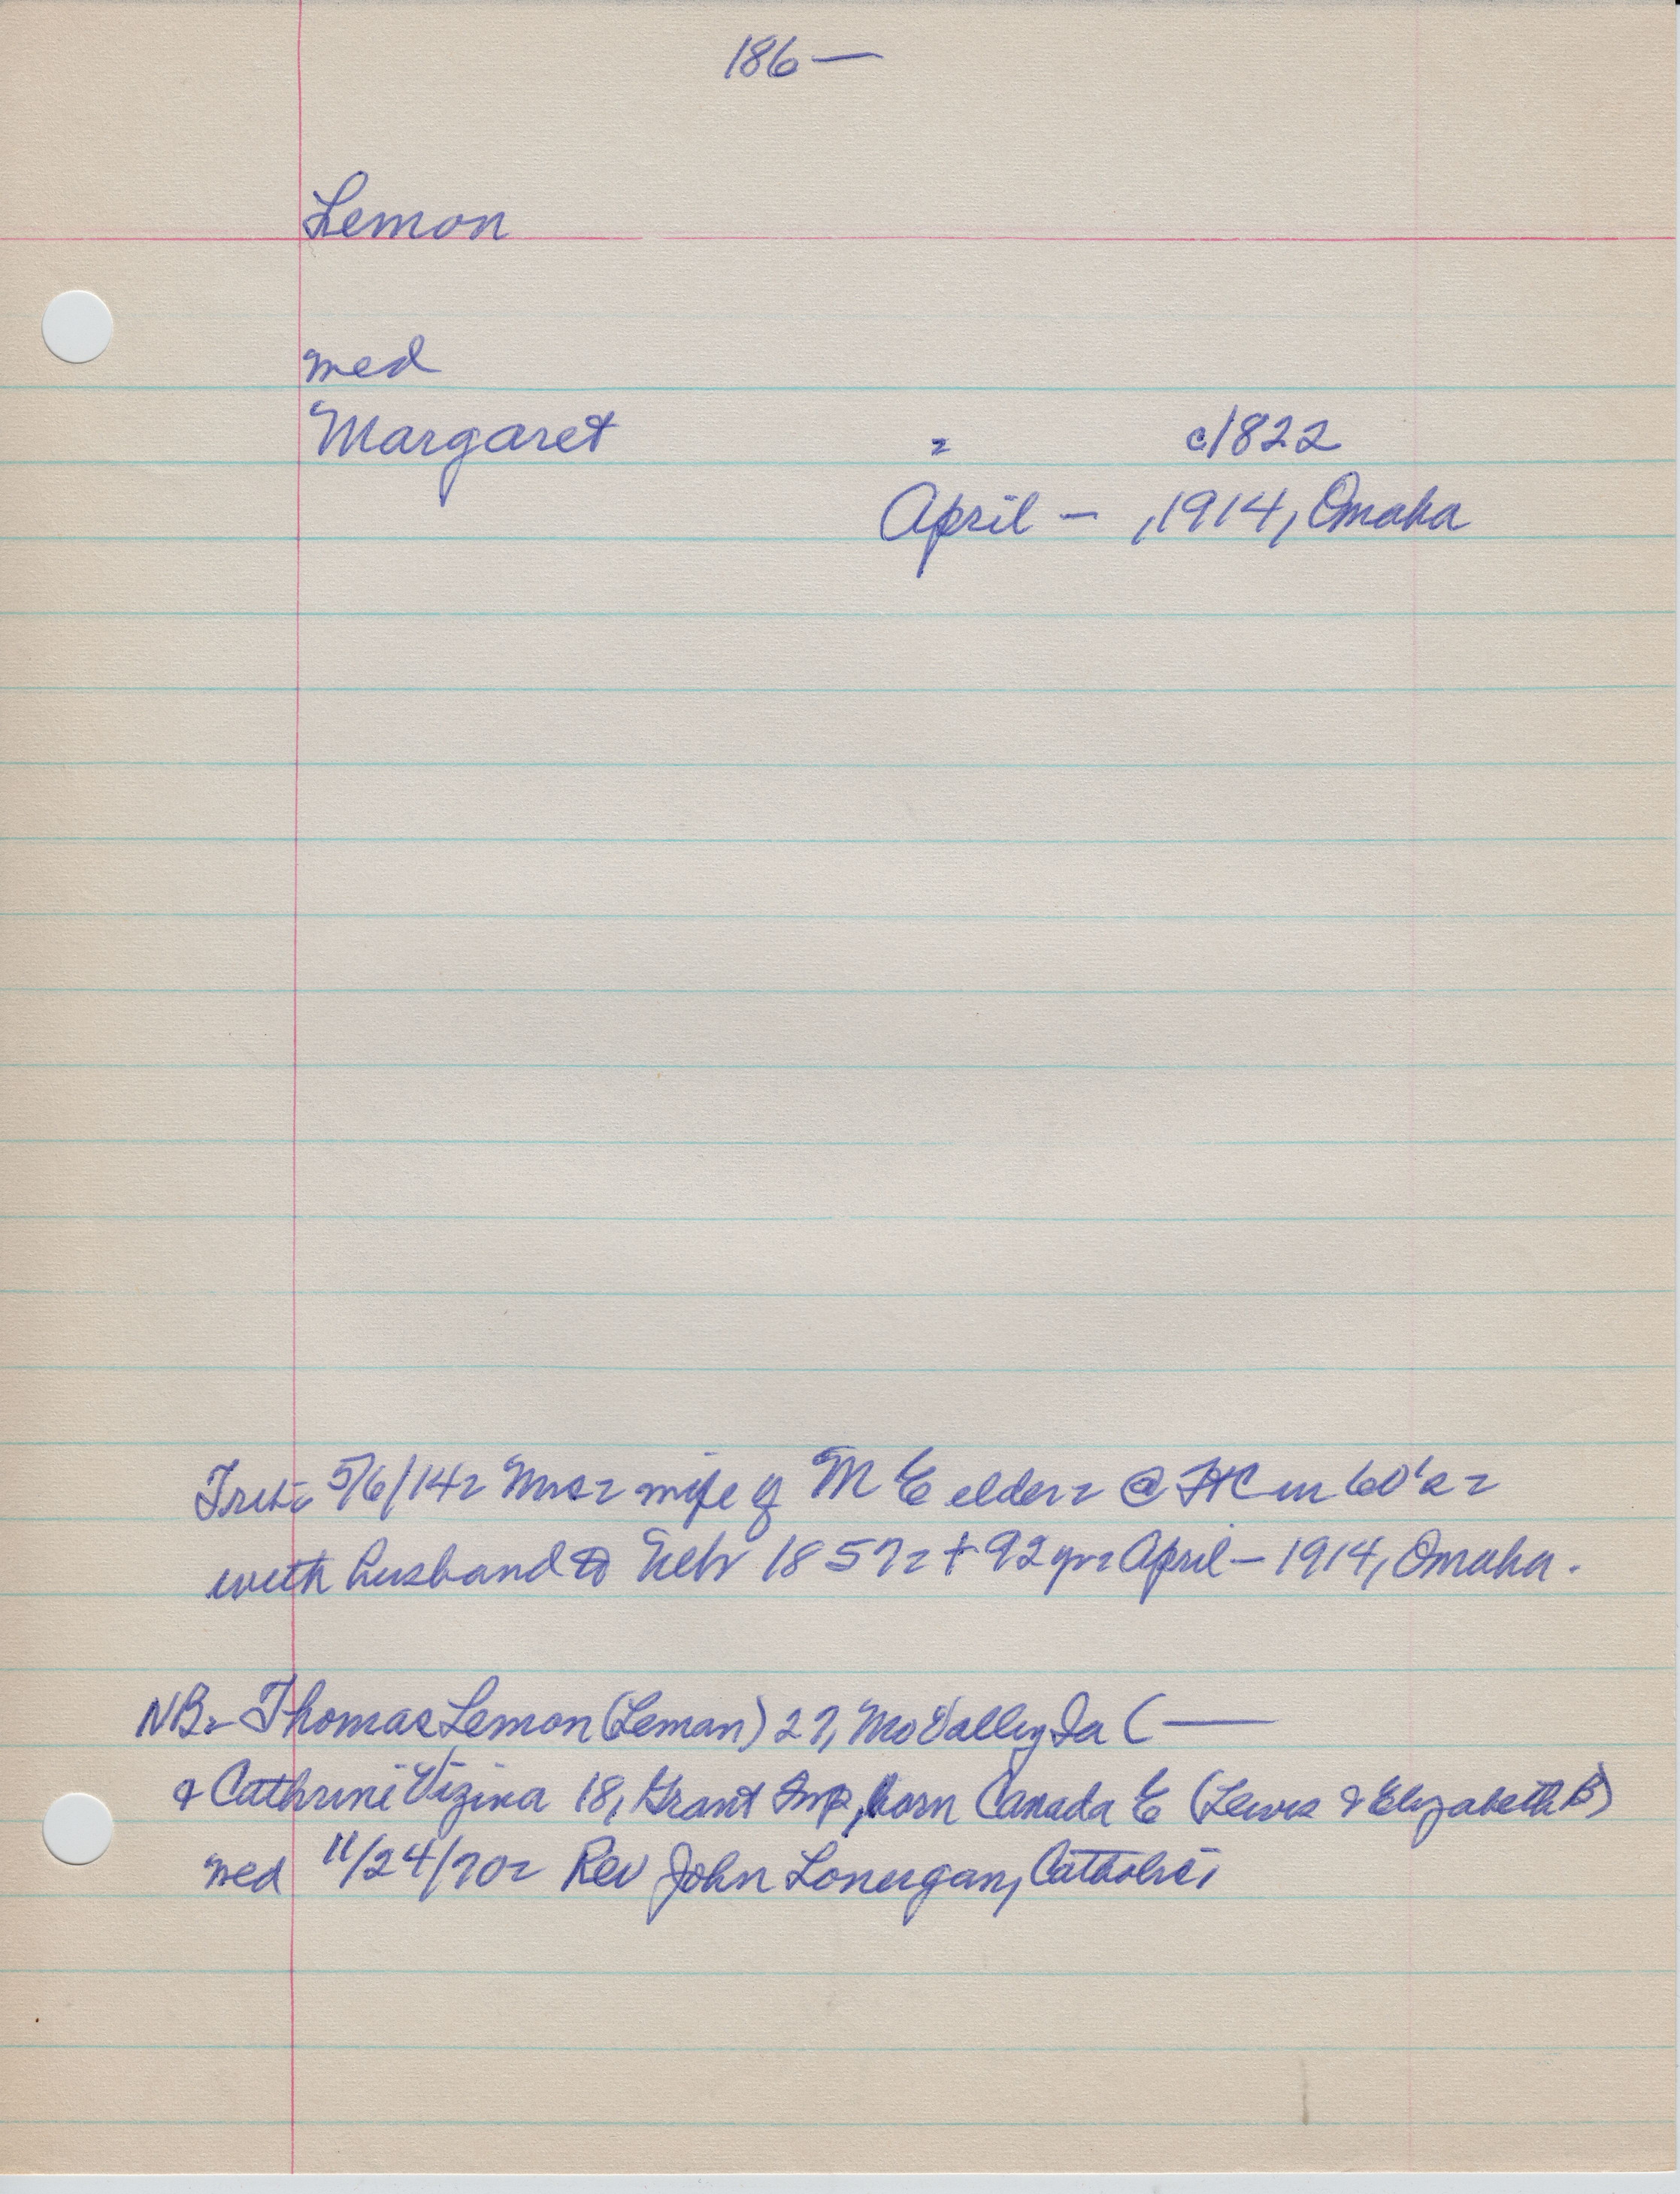 186—
Lemon
med
Margaret = c1822
April – , 1914, Omaha
Trib= 5/6/14= Mrs= wife of M E elder= @ FtC in 60's=
with husband to Nebr 1857= + 92 yr= April – 1914, Omaha.
NB= Thomas Lemon (Leman) 27, Mo Valley Ia ( —
& Cathrine Vizina 18, Grant Twp, born Canada E (Lewis & Elizabeth B)
med 11/24/70= Rev John Lonergan, Catholic